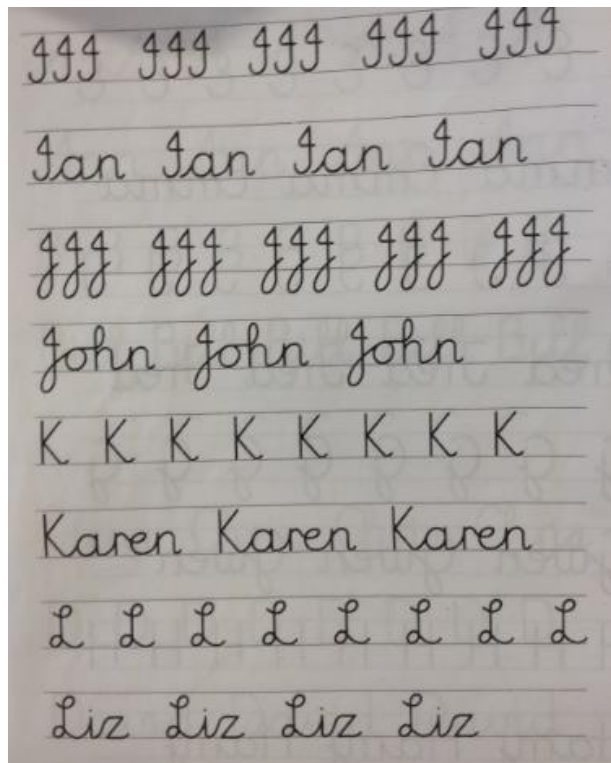 III III III III III
Ian Ian Ian Ian
JJJ JJJ JJJ JJJ JJJ
John John John
K K K K K K K K
Karen Karen Karen
L L L L L L L L
Liz Liz Liz Liz